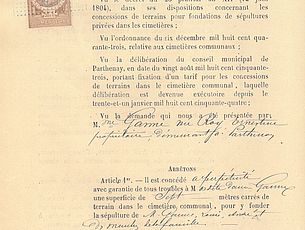 1804), dans ses dispositions concernant les
concessions de terrains pour fondations de sépultures
privées dans les cimetières;
Vu l'ordonnance du six décembre mil huit cent qua-
rante-trois, relative aux cimetières communaux;
Vu la délibération du conseil municipal de
Parthenay, en date du vingt août mil huit cent cinquante-
trois, portant fixation d'un tarif pour les concessions
de terrains dans le cimetière communal, laquelle
délibération est devenue exécutoire depuis le
trente-et-un janvier mil huit cent cinquante-quatre;
Vu la demande qui nous a été présentée par
M. me
propriétaire, demeurant à Parthenay
ARRÊTONS
Article 1er. — Il est concédé à perpétuité
avec garantie de tous troubles à M
une superficie de Sept mètres carrés de
terrain dans le cimetière communal, pour y fonder
la sépulture de M